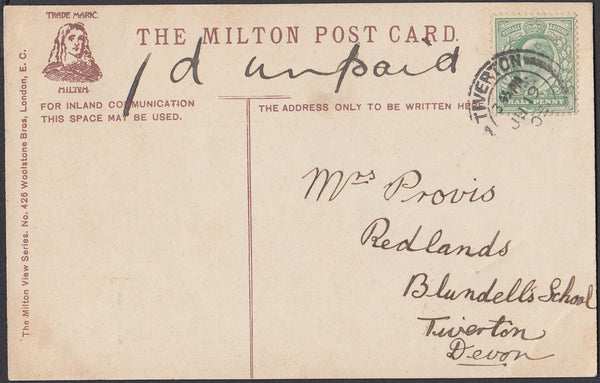 TRADE MARK.
MILTON.
THE MILTON POST CARD.
1d unpaid
FOR INLAND COMMUNICATION
THIS SPACE MAY BE USED.
THE ADDRESS ONLY TO BE WRITTEN HE
HALF PENNY
TIVERTON
Mrs Provis
Redlands
Blundell's School
Tiverton
Devon
The Milton View Series. No. 426 Woolstone Bros, London, E. C.